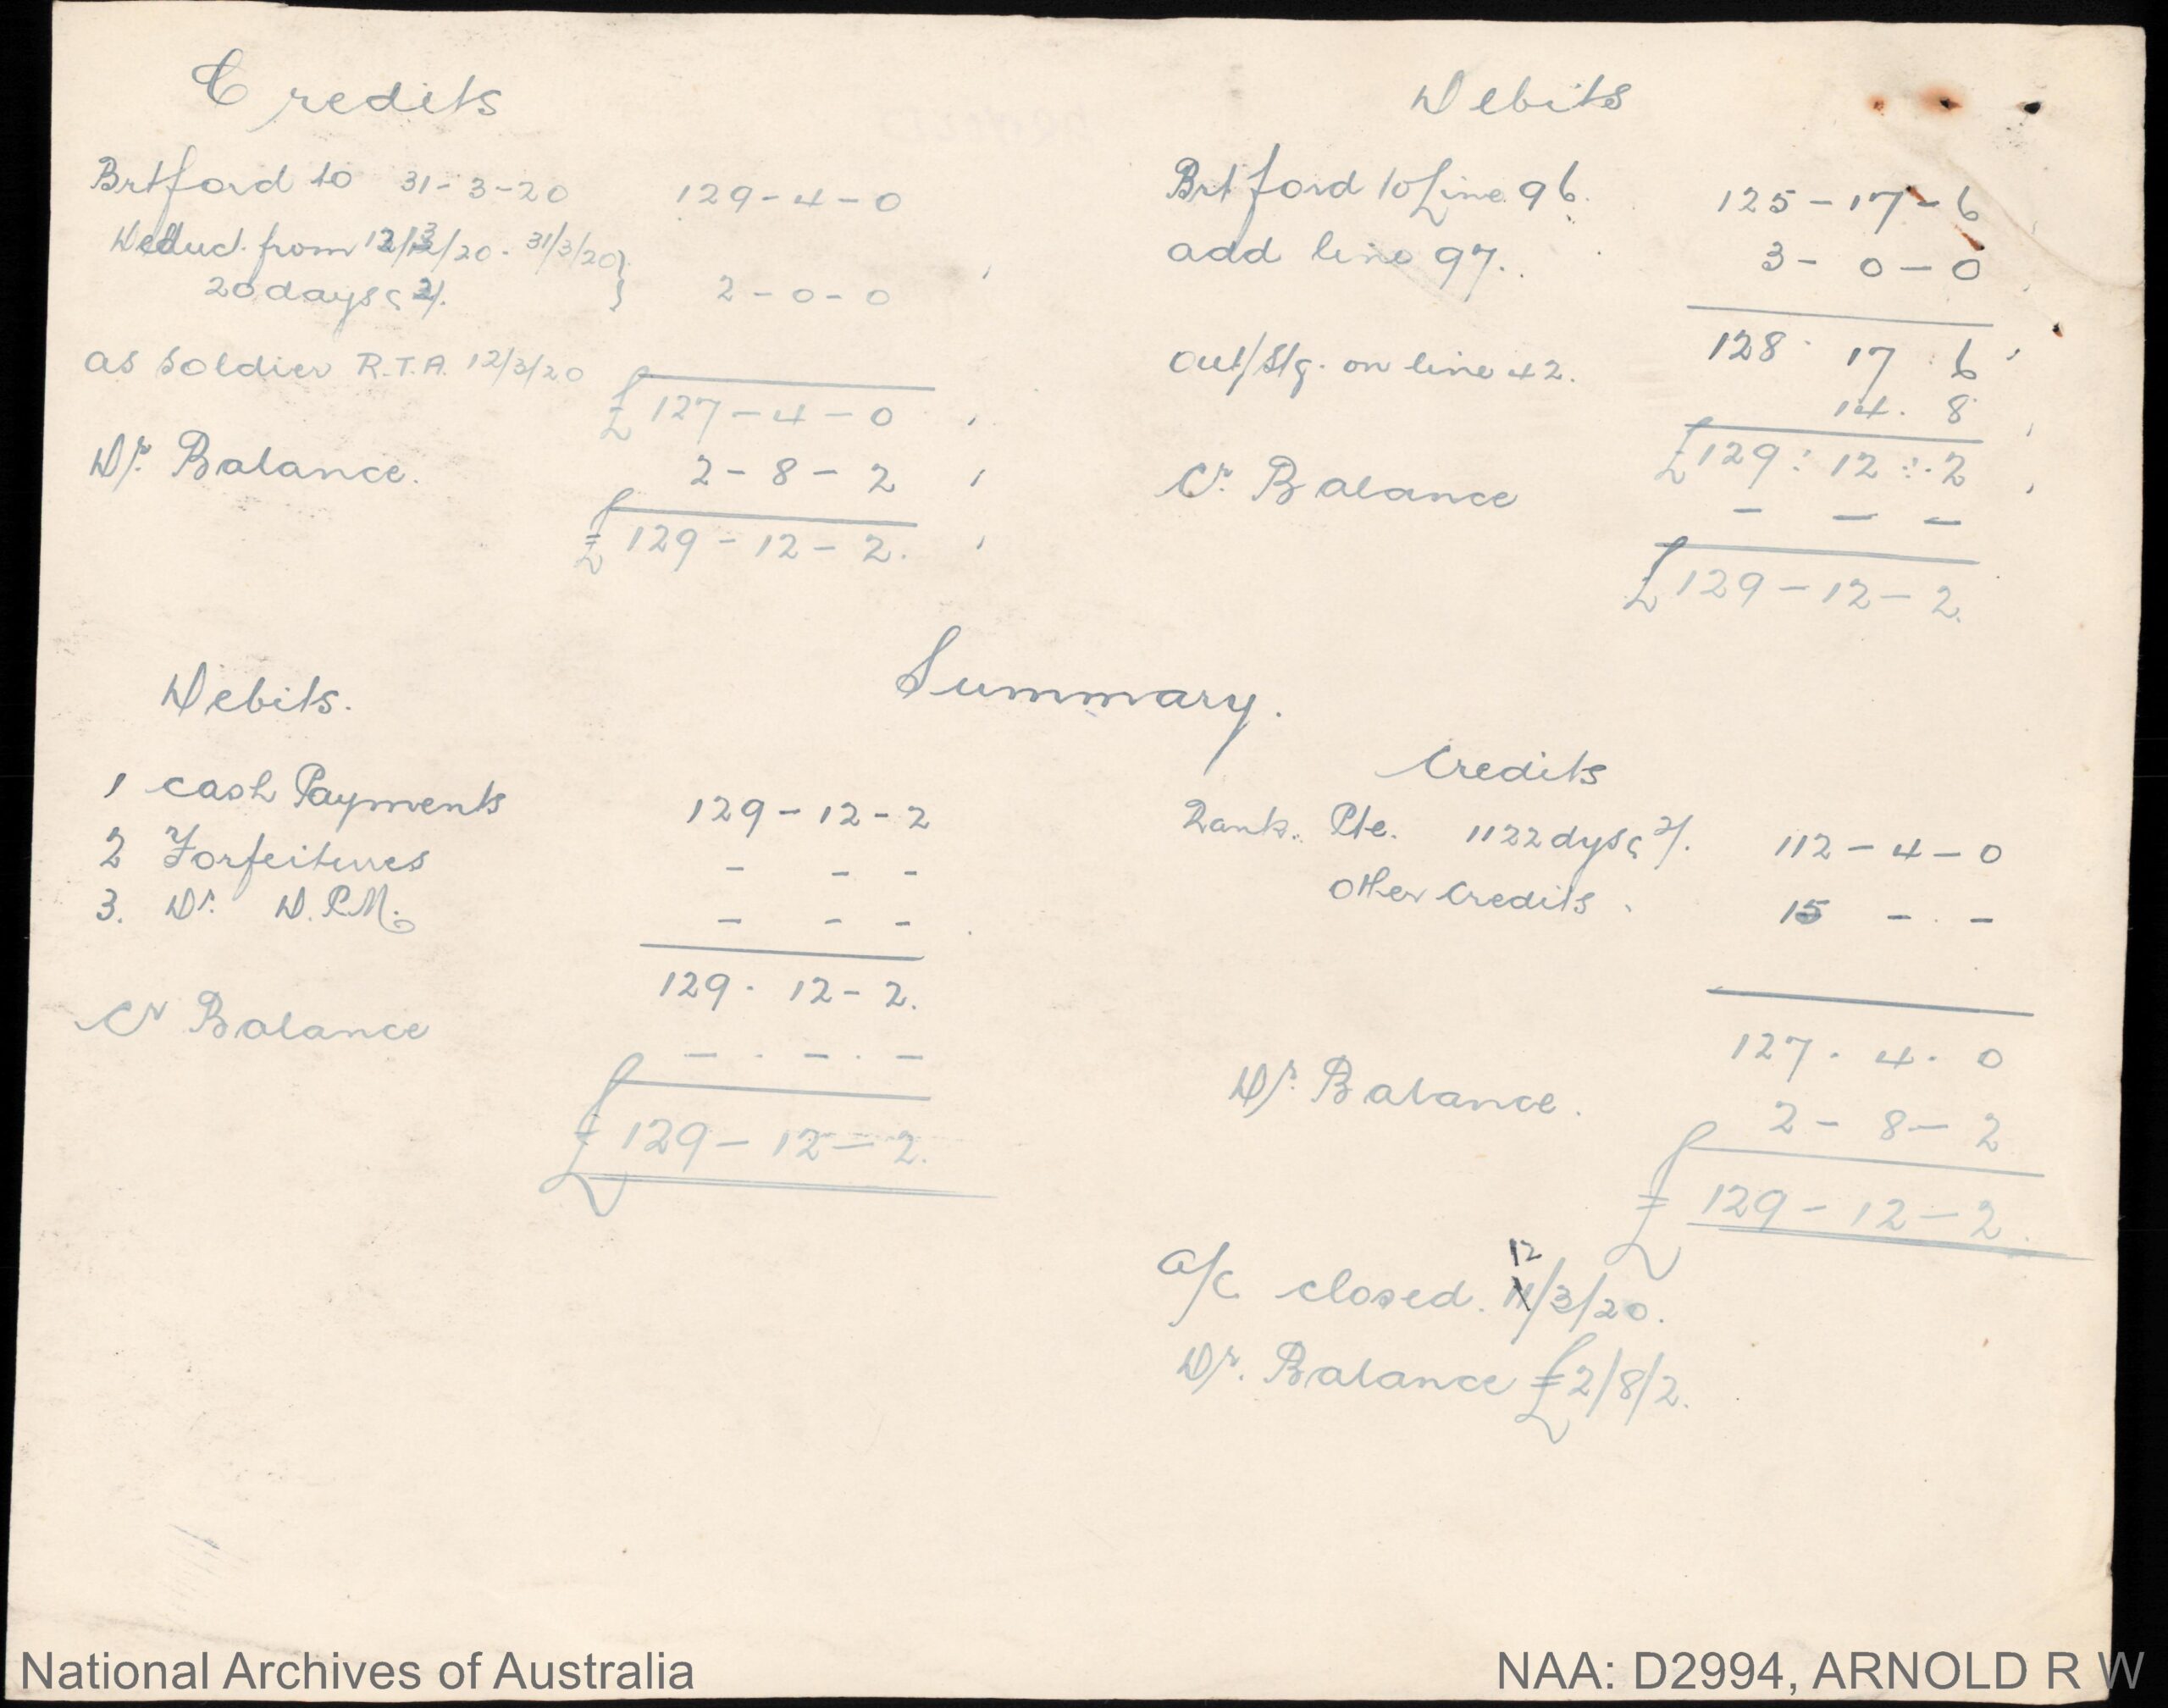 Credits
Brtford to 31-3-20 129-4-0
Deduct from 12/3/20 - 31/3/20
20 days @ 2/. 2-0-0
as Soldier R.T.A. 12/3/20
£127-4-0
Dr. Balance. 2-8-2
£129-12-2.
Debits
Brtford to Line 96. 125-17-6
add line 97. 3-0-0
128 17 6
Out/Stg. on line 42. 14. 8
£129:12:2
Cr. Balance - - -
£129-12-2.
Summary.
Debits.
1 Cash Payments 129-12-2
2 Forfeitures - - -
3. Dr. D.P.M. - - -
129. 12-2.
Cr Balance - . - . -
£129-12-2.
Credits
Rank. Pte. 1122 dys @ 2/. 112-4-0
Other Credits. 15 - . -
127. 4. 0
Dr. Balance. 2-8-2
£129-12-2.
12
a/c closed. 11/3/20.
Dr. Balance £2/8/2.
National Archives of Australia
NAA: D2994, ARNOLD R W